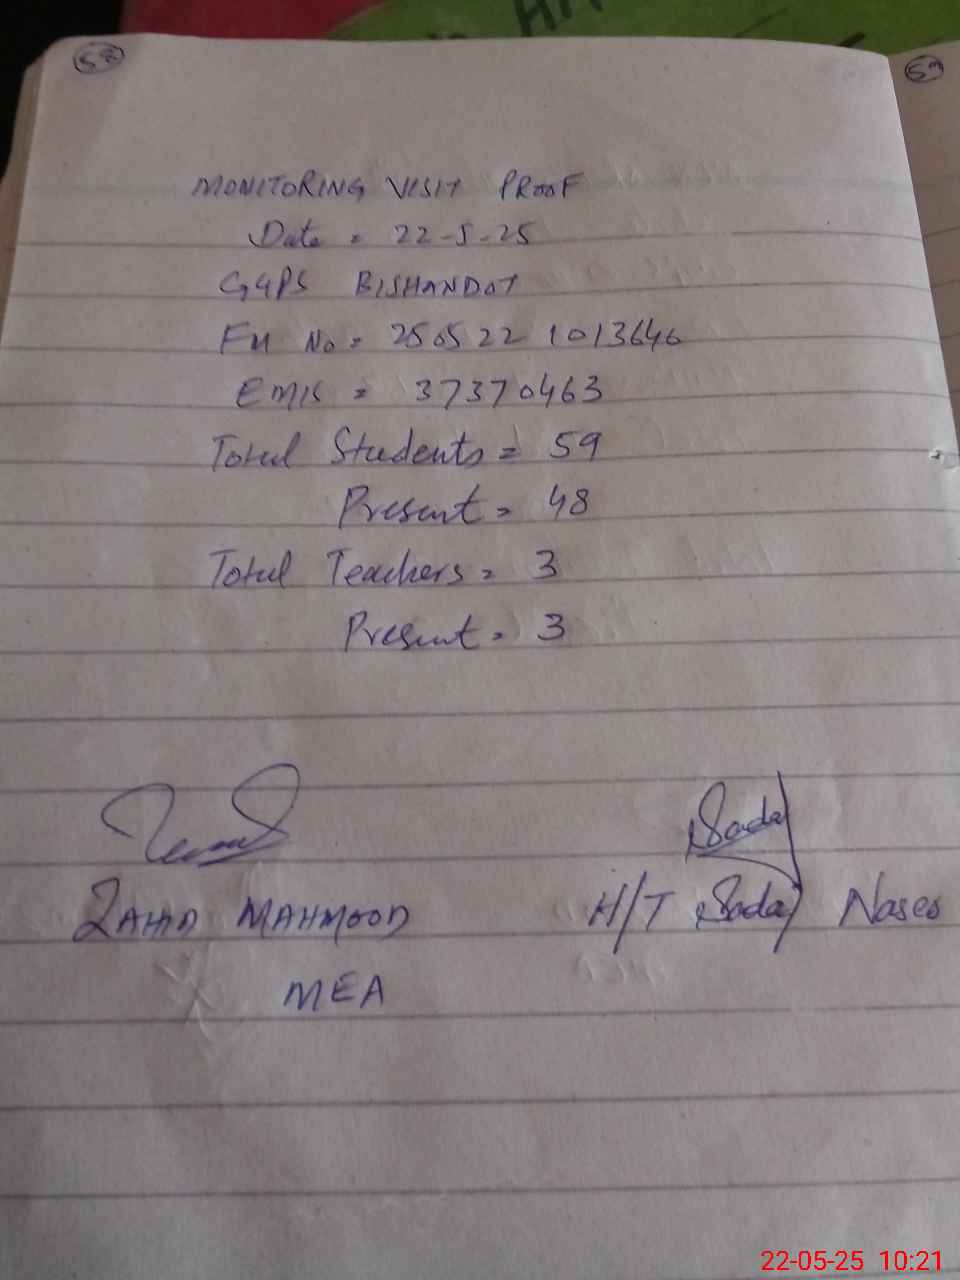 52
53
MONITORING VISIT PROOF
Date = 22-5-25
GGPS BISHANDOT
FM No = 250522 1013646
EMIS = 37370463
Total Students = 59
Present = 48
Total Teachers = 3
Present = 3
ZAHID MAHMOOD
MEA
H/T Nases
22-05-25 10:21